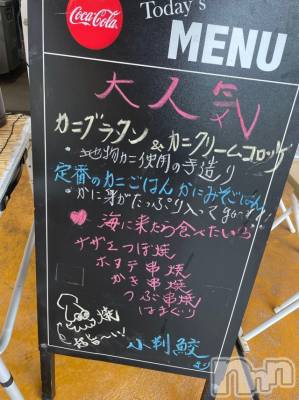 Coca-Cola
Today's
MENU
大人気
カニグラタン&カニクリームコロッケ
・地物カニ使用の手造り
定番のカニごはん かにみそごはん
・かに身がたっぷり入って
海に来たら食べたいっ!
サザエつぼ焼
ホタテ串焼
かき串焼
つぶ串焼
はまぐり
焼
旨〜い!
小判鮫
より